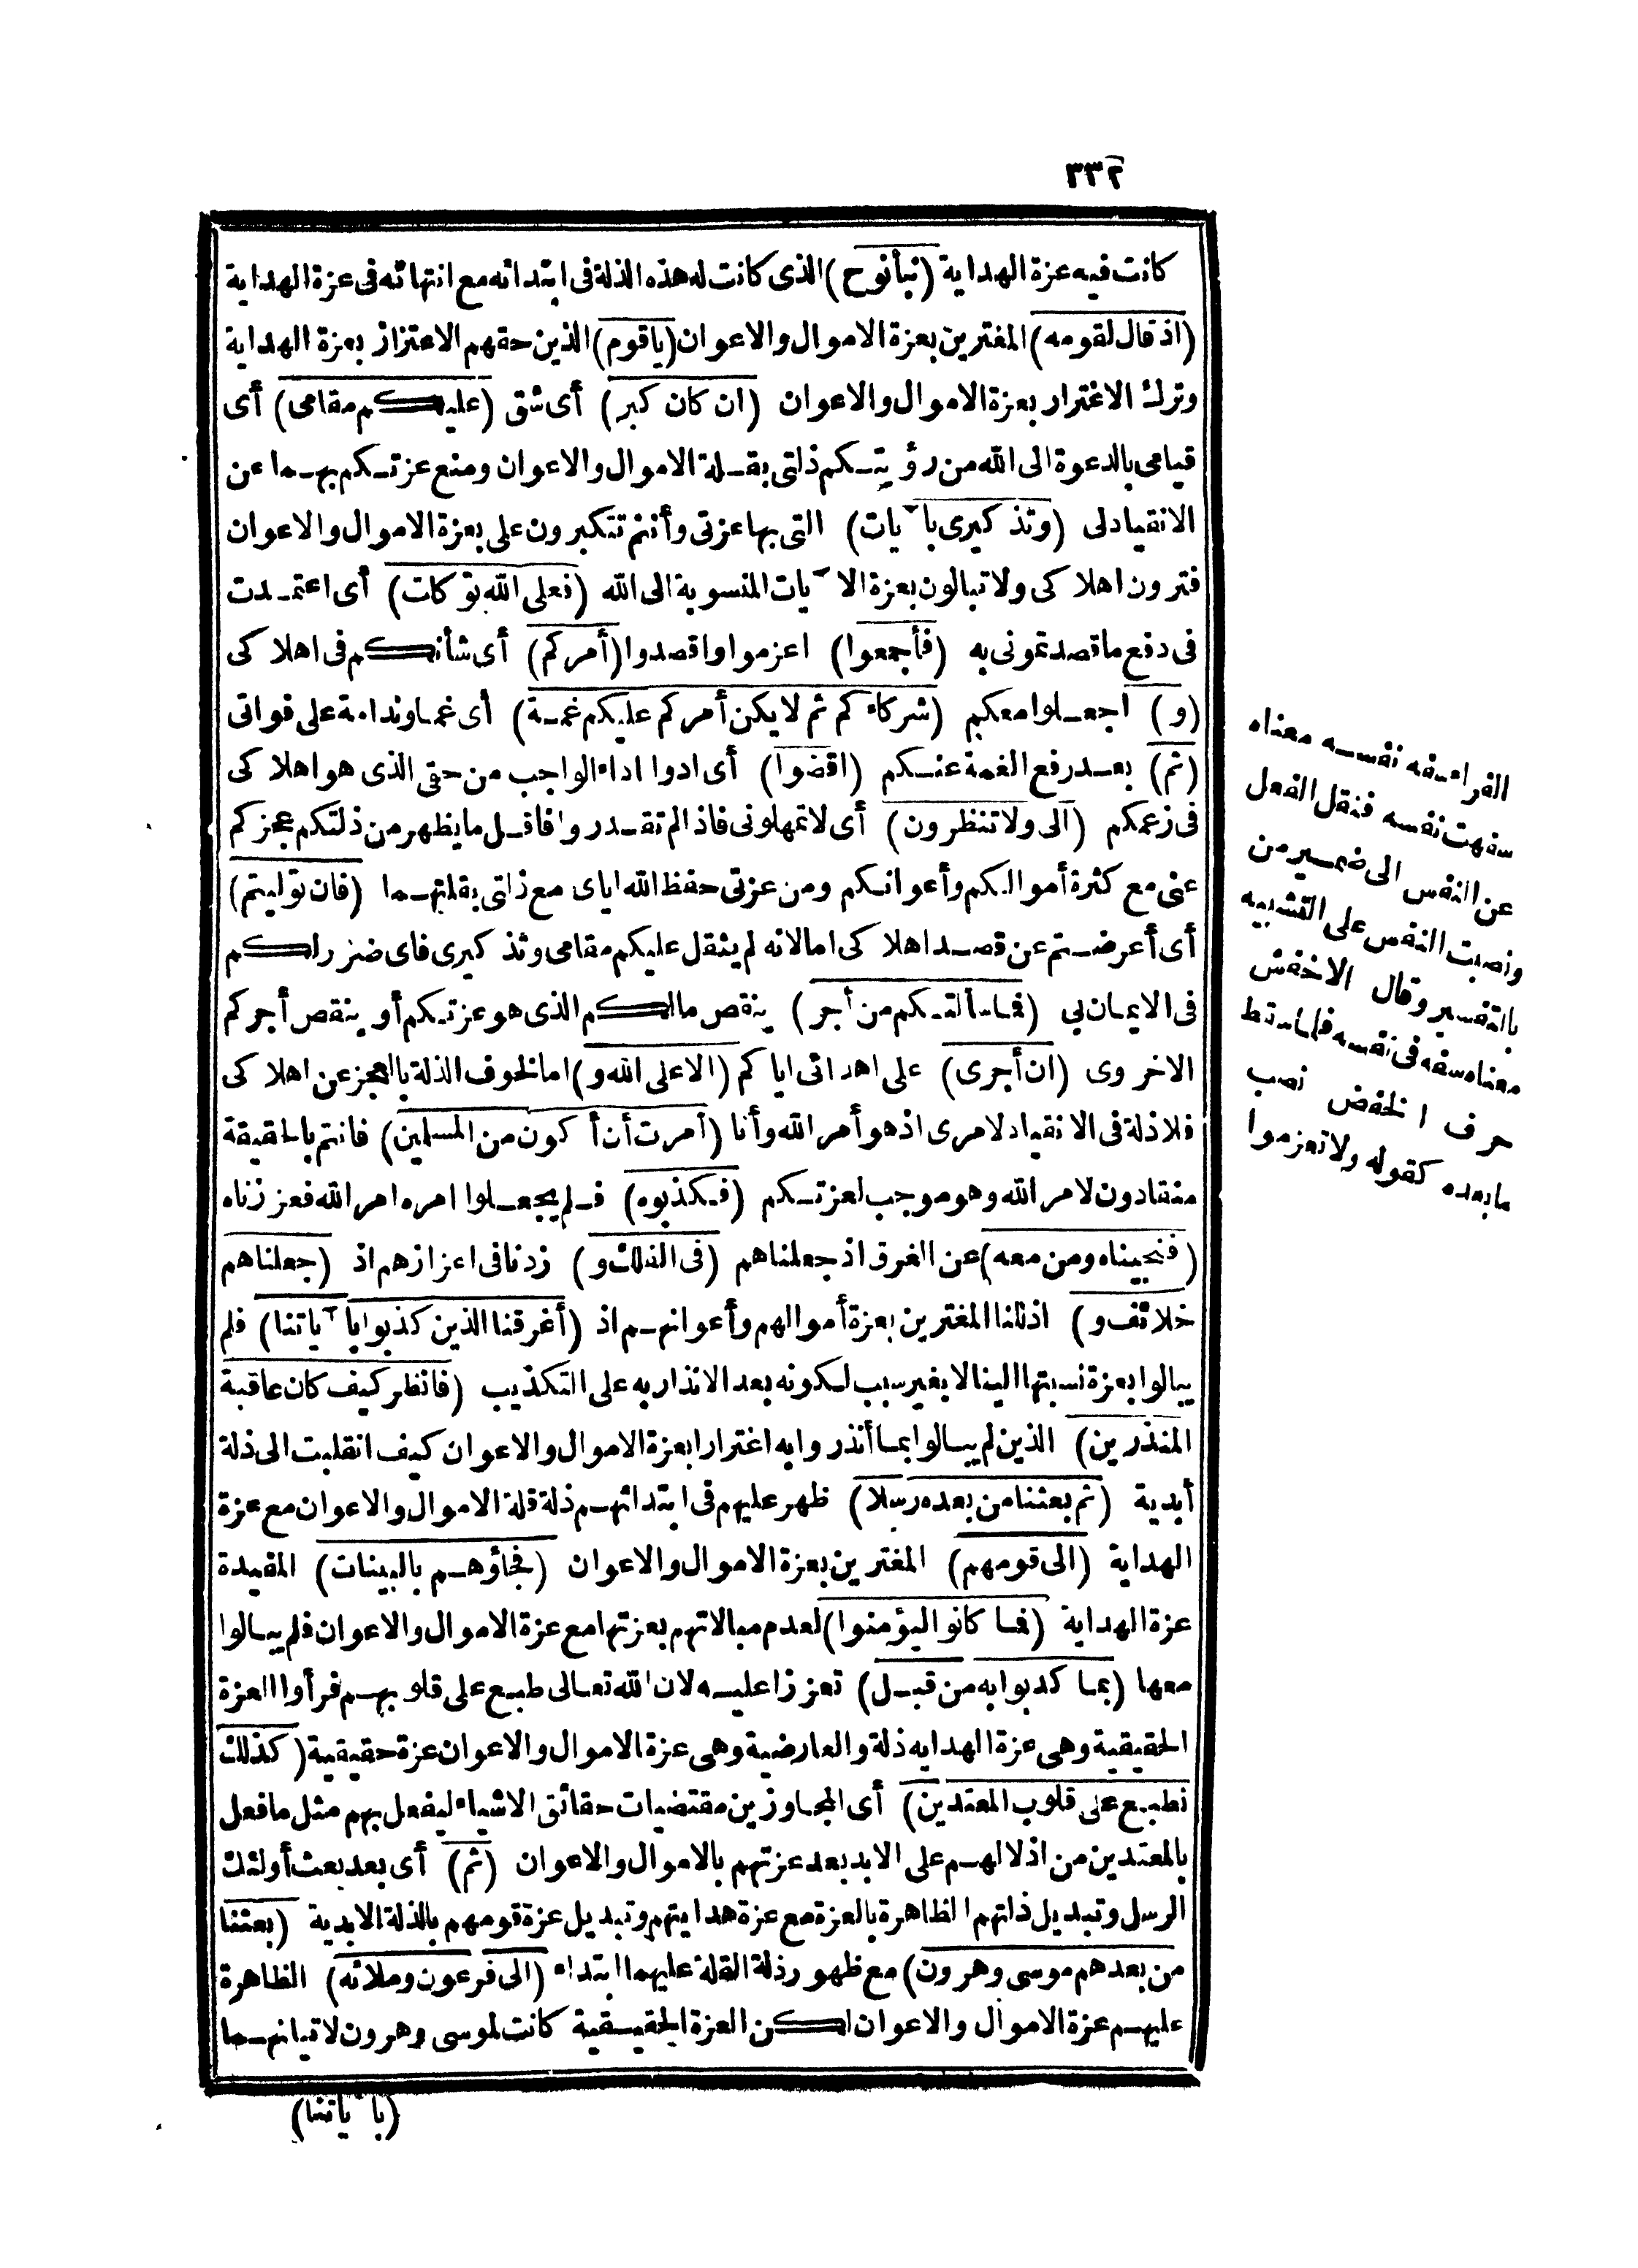 ٣٣٢
كانت فيه عزة الهداية (نبأ نوح) الذى كانت له هذه الذلة فى ابتدائه مع انتهائه فى عزة الهداية
(اذ قال لقومه) المغترين بعزة الاموال والاعوان (ياقوم) الذين حقهم الاعتزاز بعزة الهداية
وترك الاغترار بعزة الاموال والاعوان (ان كان كبر) أى شق (عليكم مقامى) أى
قيامى بالدعوة الى الله من رؤيتكم ذلتى بقلة الاموال والاعوان ومنع عزتكم بهما عن
الانقياد لى (وتذكيرى بآيات) التى بها عزتى وأنتم تتكبرون على بعزة الاموال والاعوان
فترون اهلاكى ولا تبالون بعزة الآيات المنسوبة الى الله (فعلى الله توكلت) أى اعتمدت
فى دفع ما قصدتمونى به (فأجمعوا) اعزموا واقصدوا (أمركم) أى شأنكم فى اهلاكى
(و) اجعلوا معكم (شركاءكم ثم لا يكن أمركم عليكم غمة) أى غما وندامة على فواتى
(ثم) بعد رفع الغمة عنكم (اقضوا) أى ادوا اداء الواجب من حقى الذى هو اهلاكى
فى زعمكم (الى ولا تنظرون) أى لا تمهلونى فاذا لم تقدروا فاقل ما يظهر من ذلتكم عجزكم
عنى مع كثرة أموالكم وأعوانكم ومن عزتى حفظ الله اياى مع ذلتى بقلتهما (فان توليتم)
أى أعرضتم عن قصد اهلاكى امالانه لم يثقل عليكم مقامى وتذكيرى فاى ضرر لكم
فى الايمان بى (فما سألتكم من أجر) ينقص مالكم الذى هو عزتكم أو ينقص أجركم
الاخروى (ان أجرى) على اهدائى اياكم (الا على الله و) اما لخوف الذلة بالعجز عن اهلاكى
فلا ذلة فى الانقياد لامرى اذ هو أمر الله وأنا (أمرت أن أكون من المسلمين) فانتم بالحقيقة
منقادون لامر الله وهو موجب لعزتكم (فكذبوه) فلم يجعلوا امره امر الله فعززناه
(فنجيناه ومن معه) عن الغرق اذ جعلناهم (فى الفلك و) زدنا فى اعزازهم اذ (جعلناهم
خلائف و) اذللنا المغترين بعزة أموالهم وأعوانهم اذ (أغرقنا الذين كذبوا بآياتنا) فلم
يبالوا بعزة نسبتها الينا لا بغير سبب لكونه بعد الانذار به على التكذيب (فانظر كيف كان عاقبة
المنذرين) الذين لم يبالوا بما أنذروا به اغترارا بعزة الاموال والاعوان كيف انقلبت الى ذلة
أبدية (ثم بعثنا من بعده رسلا) ظهر عليهم فى ابتدائهم ذلة قلة الاموال والاعوان مع عزة
الهداية (الى قومهم) المغترين بعزة الاموال والاعوان (فجاؤهم بالبينات) المفيدة
عزة الهداية (فما كانوا ليؤمنوا) لعدم مبالاتهم بعزتها مع عزة الاموال والاعوان فلم يبالوا
معها (بما كذبوا به من قبل) تعززا عليه لان الله تعالى طبع على قلوبهم فرأوا العزة
الحقيقية وهى عزة الهدايه ذلة والعارضية وهى عزة الاموال والاعوان عزة حقيقية (كذلك
نطبع على قلوب المعتدين) أى المجاوزين مقتضيات حقائق الاشياء ليفعل بهم مثل ما فعل
بالمعتدين من اذلالهم على الابد بعد عزتهم بالاموال والاعوان (ثم) أى بعد بعث أولئك
الرسل وتبديل ذلتهم الظاهرة بالعزة مع عزة هدايتهم وتبديل عزة قومهم بالذلة الابدية (بعثنا
من بعدهم موسى وهرون) مع ظهور ذلة القلة عليهما ابتداء (الى فرعون وملائه) الظاهرة
عليهم عزة الاموال والاعوان لكن العزة الحقيقية كانت لموسى وهرون لاتيانهما
(بآياتنا)
الفراء سفه نفسه معناه
سفهت نفسه فنقل الفعل
عن النفس الى ضمير من
ونصبت النفس على التشبيه
بالتفسير وقال الاخفش
معناه سفه فى نفسه فلما سقط
حرف الخفض نصب
ما بعده كقوله ولا تعزموا